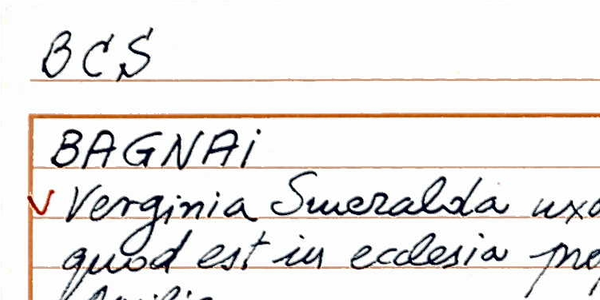 BCS
BAGNAI
Verginia Smeralda
quod est in ecclesia